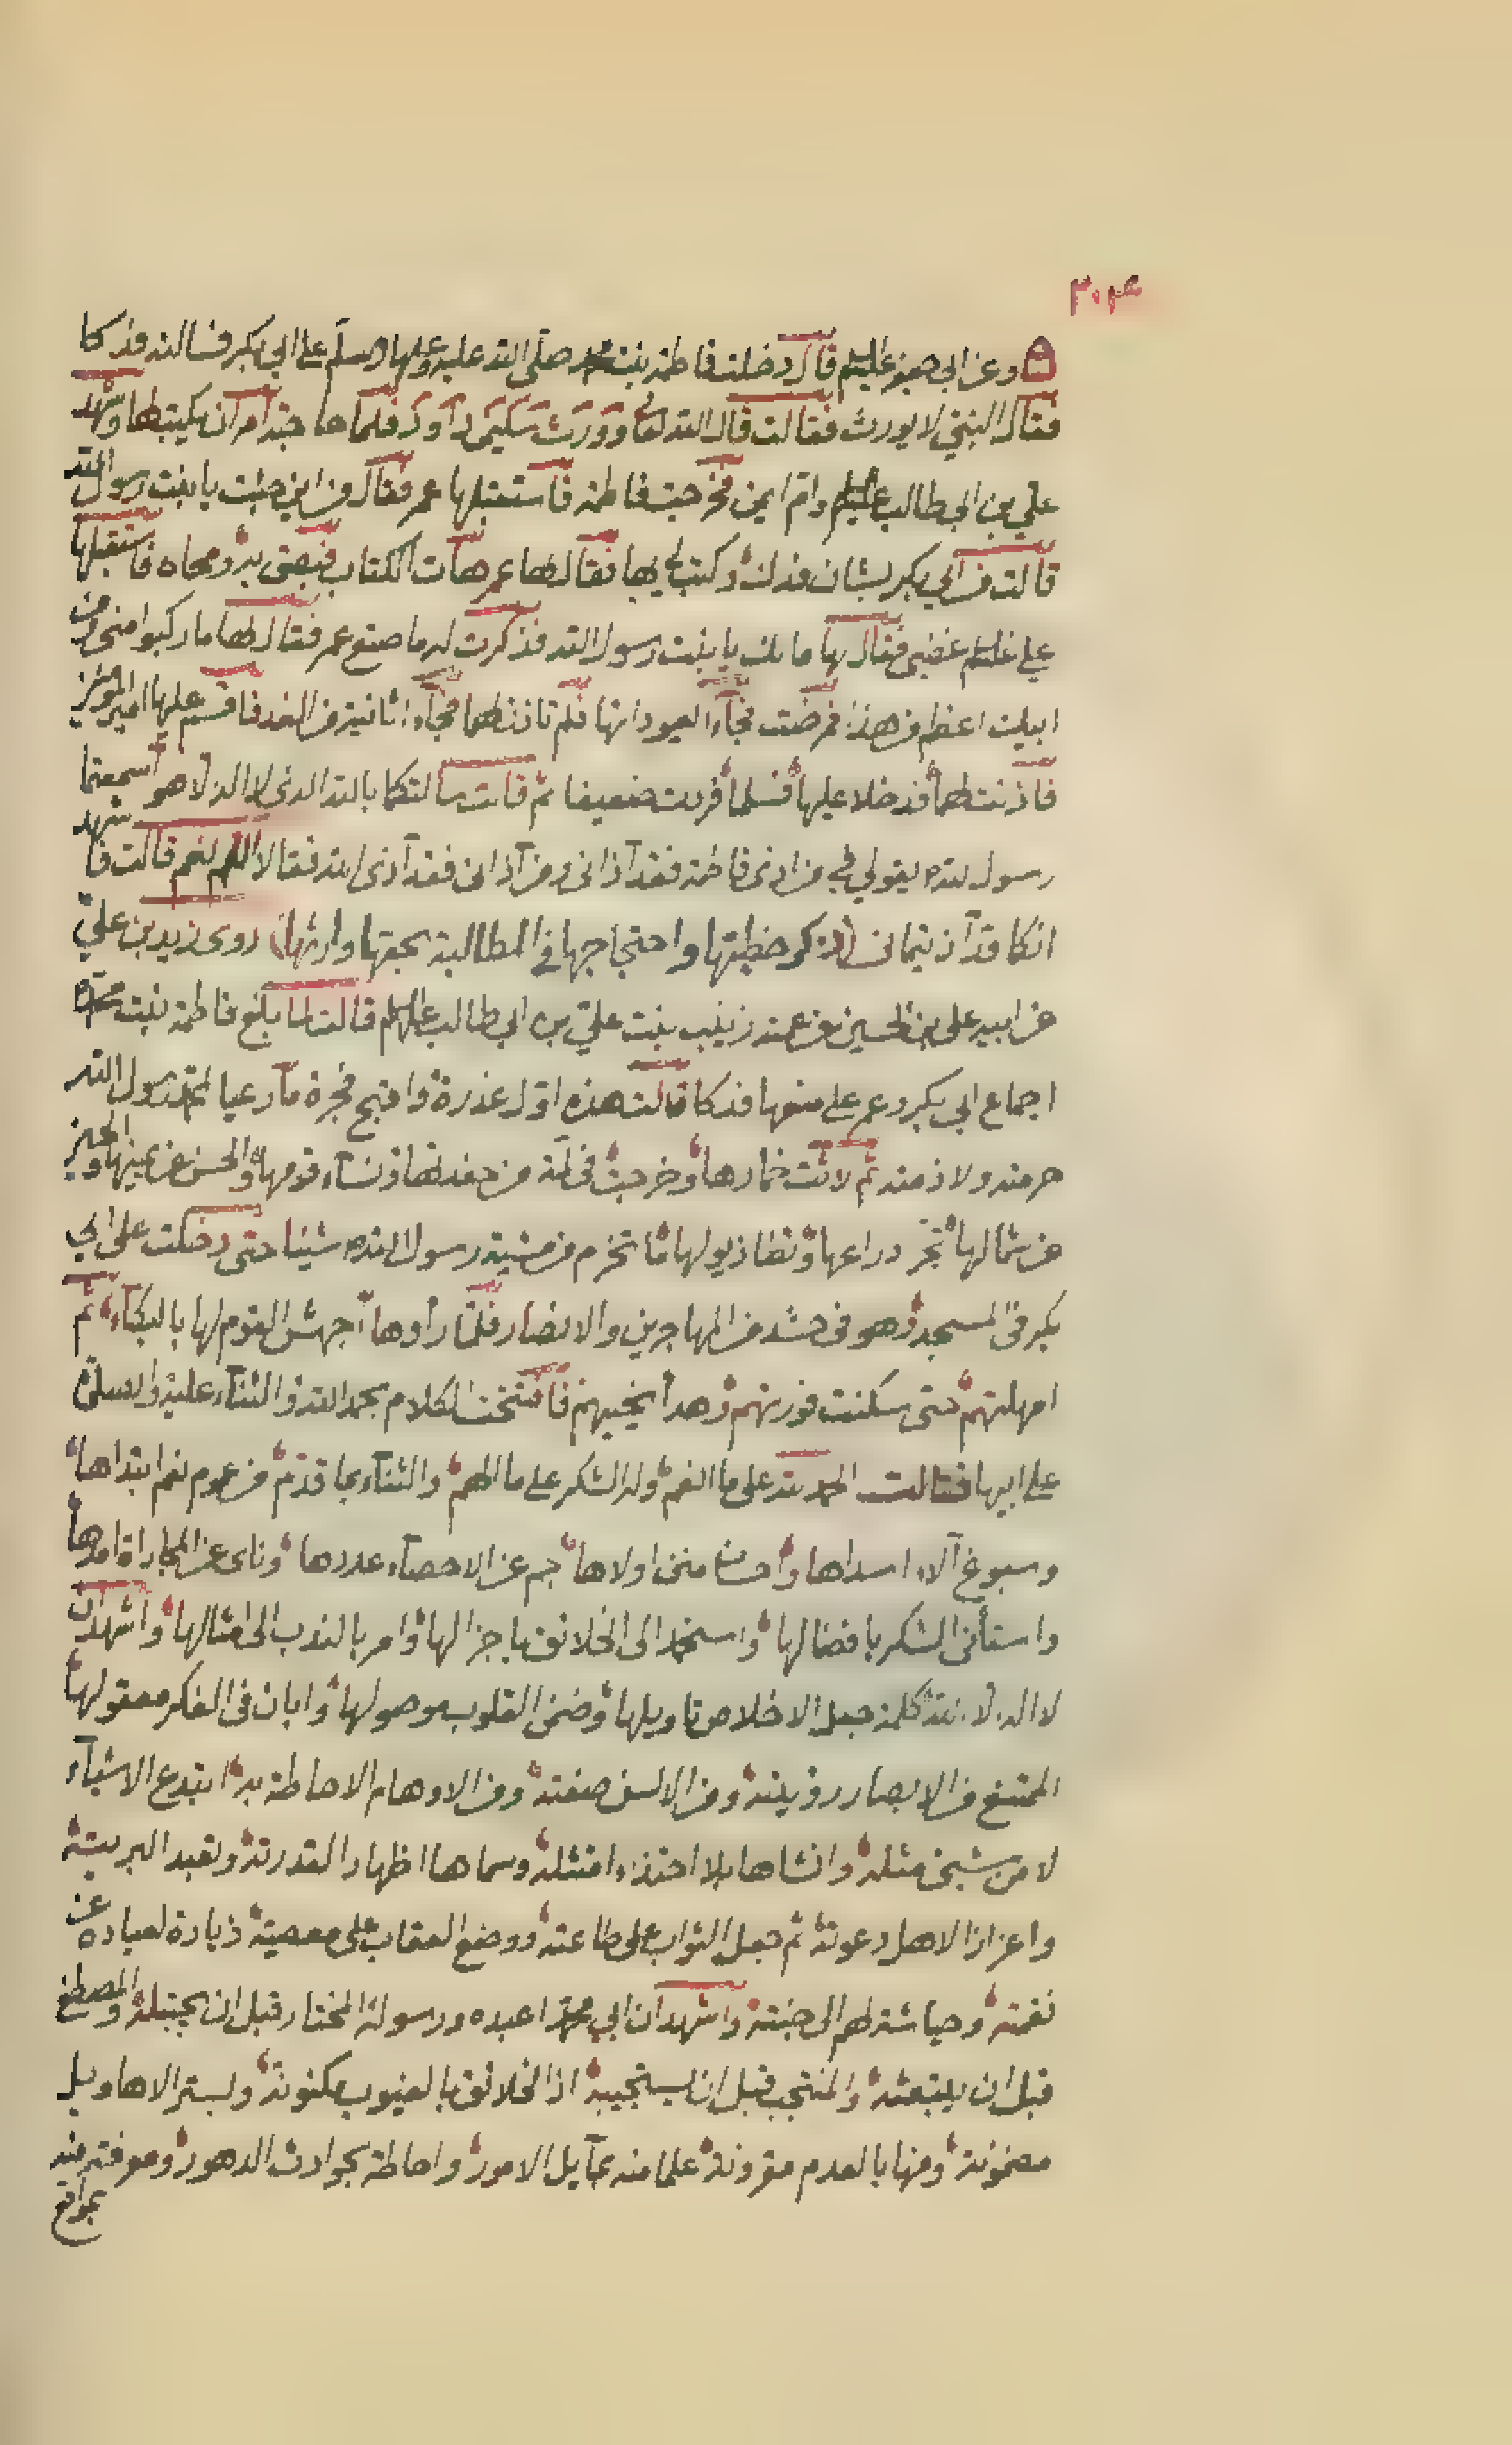 ٣٠٤
وعن ابي جعفر عليه السلم قال دخلت فاطمة بنت محمد صلى الله عليه وعليها وسلم على ابي بكر فسالته فدكا
فقال النبي لا يورث فقالت قال الله تعالى وورث سليمن داود فلما حاجته امر ان يكتب لها وشهد
علي بن ابي طالب عليه السلم وام ايمن فخرجت فاطمة فاستقبلها عمر فقال من اين جئت يا بنت رسول الله
قالت من ابي بكر بشان فدك وكتب لي بها فقال لها عمر هات الكتاب فبصق به ومحاه فاستقبلها
علي عليه السلم غضبى فقال لها ما بك يا بنت رسول الله فذكرت له ما صنع عمر فقال لها ما ركبوا مني ومن
ابيك اعظم من هذا فمرضت فجآءا ليعوداها فلم تاذن لهما فجاءا ثانية من الغد فاقسم عليها امير المؤمنين
فاذنت لهما فدخلا عليها فسلما فردت ضعيفا ثم قالت سالتكما بالله الذي لا اله الا هو اسمعتما
رسول الله يقول في من اذى فاطمة فقد آذاني ومن آذاني فقد آذى الله فقالا اللهم نعم قالت فاشهد
انكما قد آذيتماني ذكر خطبتها واحتجاجها في المطالبة بحقها وارثها روى زيد بن علي
عن ابيه على بن الحسين عن عمته زينب بنت علي بن ابي طالب عليهم السلم قالت لما بلغ فاطمة بنت محمد
اجماع ابي بكر وعمر على منعها فدكا قالت هذه اول غدرة واقبح فجرة مآ رعيا لمحمد رسول الله
حرمته ولا ذمته ثم لاثت خمارها وخرجت في لمة من حفدتها ونسآء قومها والحسن عن يمينها والحسين
عن شمالها تجر دراعها وتطا ذيولها ما تخرم من مشية رسول الله شيئا حتى دخلت على ابي
بكر في المسجد وهو في حشد من المهاجرين والانصار فلما رأوها اجهش القوم لها بالبكآء ثم
امهلتهم حتى سكنت فورتهم وهدأ نحيبهم فافتتحت الكلام بحمد الله والثنآء عليه والصلوة
على ابيها فقالت الحمد لله على ما انعم وله الشكر على ما الهم والثنآء بما قدم من عموم نعم ابتداها
وسبوغ آلاء اسداها واحسان منن اولاها جم عن الاحصآء عددها ونأى عن المجاراة امدها
واستأنى الشكر بافضالها واستحمد الى الخلائق باجزالها وامر بالندب الى امثالها واشهد ان
لا اله الا الله كلمة جعل الاخلاص تاويلها وضمن القلوب موصولها وابان في الفكر معقولها
الممتنع من الابصار رؤيته ومن الالسن صفته ومن الاوهام الاحاطة به ابتدع الاشيآء
لا من شيئ مثله وانشاها بلا احتذاء امثله وسماها اظهارا لقدرته وتعبد البريته
واعزازا لاهل دعوته ثم جعل الثواب على طاعته ووضع العقاب على معصيته زيادة لعباده عن
نقمته وحياشة لهم الى جنته واشهد ان ابي محمدا عبده ورسوله المختار قبل ان يجتبله والمصطفى
قبل ان يبتعثه والمنتجب قبل ان يستجيبه اذ الخلائق بالغيوب مكنونة وبستر الاهاويل
مضمونة ومنها بالعدم مقرونة علما منه بمآيل الامور واحاطة بحوادث الدهور ومعرفة منه
بمواقع